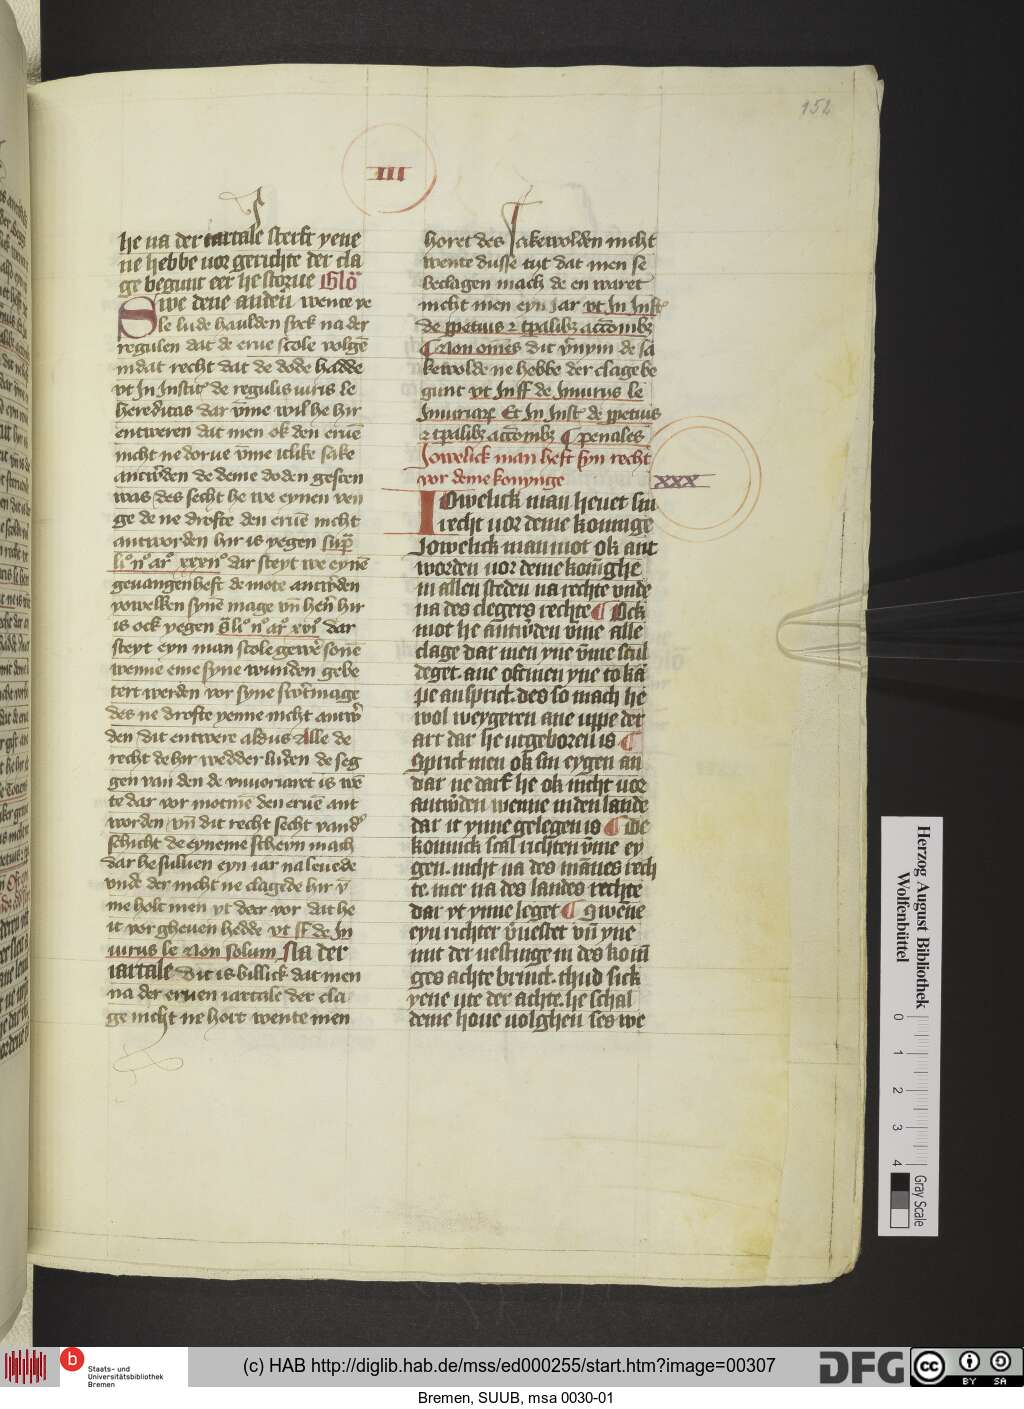 152
III
he na der iartale sterft yene
ne hebbe vor gerichte der cla
ge begunt eer he storue Glo
Swe deue anderen wente ve
le lude haulden stek na der
regulen dat de erue scole volgē
in dat recht dat de dode hadde
vt In Instit de regulis iuris le
hereditas dar vme wil he hir
entweren dat men ok den eruē
nicht ne dorue vme itlike sake
antwden de deme doden gescen
was des secht he we eynen ven
ge de ne drofte den eruē nicht
antworden hir is yegen sup
li° n° ar° xxxvi° dar steyt we eynē
geuangen heft de mote antwden
yowelken synē mage vn herē hir
is ock yegen li° n° ar° xvi° dar
steyt eyn man scole gewē sone
wenne eme syne wunden gebe
tert werden vor syne swtmage
des ne drofte yenne nicht antw
den dit entwere aldus Alle de
recht de hir wedder luden de seg
gen van den de vnuoriaret is wē
te dar vor moten de eruē ant
worden vn dit recht secht vand
schicht de eyneme scheyn mach
dar he sulluen eyn iar na leuede
vnde der nicht ne clagede hir v
me holt men yt deer vor dat he
it vorgheuen hedde vt ff de In
iurus le Non solum Na der
iartale Dit is billick dat men
na der eruen iartale der cla
ge nicht ne hort wente men
horet des sakewolden nicht
wente dusse tyt dat men se
beclagen mach de en waret
nicht men eyn iar vt In Inst
de ppetuis 2 tpalib acconib
Non omēs dit vnym de sa
kewolde ne hebbe der clage be
gunt vt In ff de Iniurus le
Iniuriar Et In Inst de ppetuis
2 tpalib acconib penales
Iowelick man heft syn recht
vor deme konynge
XXX
IOwelick man heuet sin
recht vor deme konnige
Iowelick man mot ok ant
worden vor deme konighe
in allen steden na rechte vnde
na des clegers rechte Ock
mot he antwden vme alle
clage dar men yne vme scul
deget. ane oft men yne to kā
pe ansprict. des so mach he
wol weygeren ane vppe der
art dar he utgeboren is
Sprict men ok sin eygen an
dar ne darf he ok nicht vor
antwden wenne in den lande
dar it ynne gelegen is De
konnick scal richten vme ey
gen. nicht na des mānes rech
te. mer na des landes rechte
dar yt ynne leget Swene
eyn richter vuestet vn yne
mit der uestinge in des konī
ges achte brinct. thud sick
yene vte der achte. he schal
deme houe volghen ses we
Herzog August Bibliothek
Wolfenbüttel
0 1 2 3 4
Gray Scale
b
Staats- und
Universitätsbibliothek
Bremen
(c) HAB http://diglib.hab.de/mss/ed000255/start.htm?image=00307
DFG
cc
BY SA
Bremen, SUUB, msa 0030-01